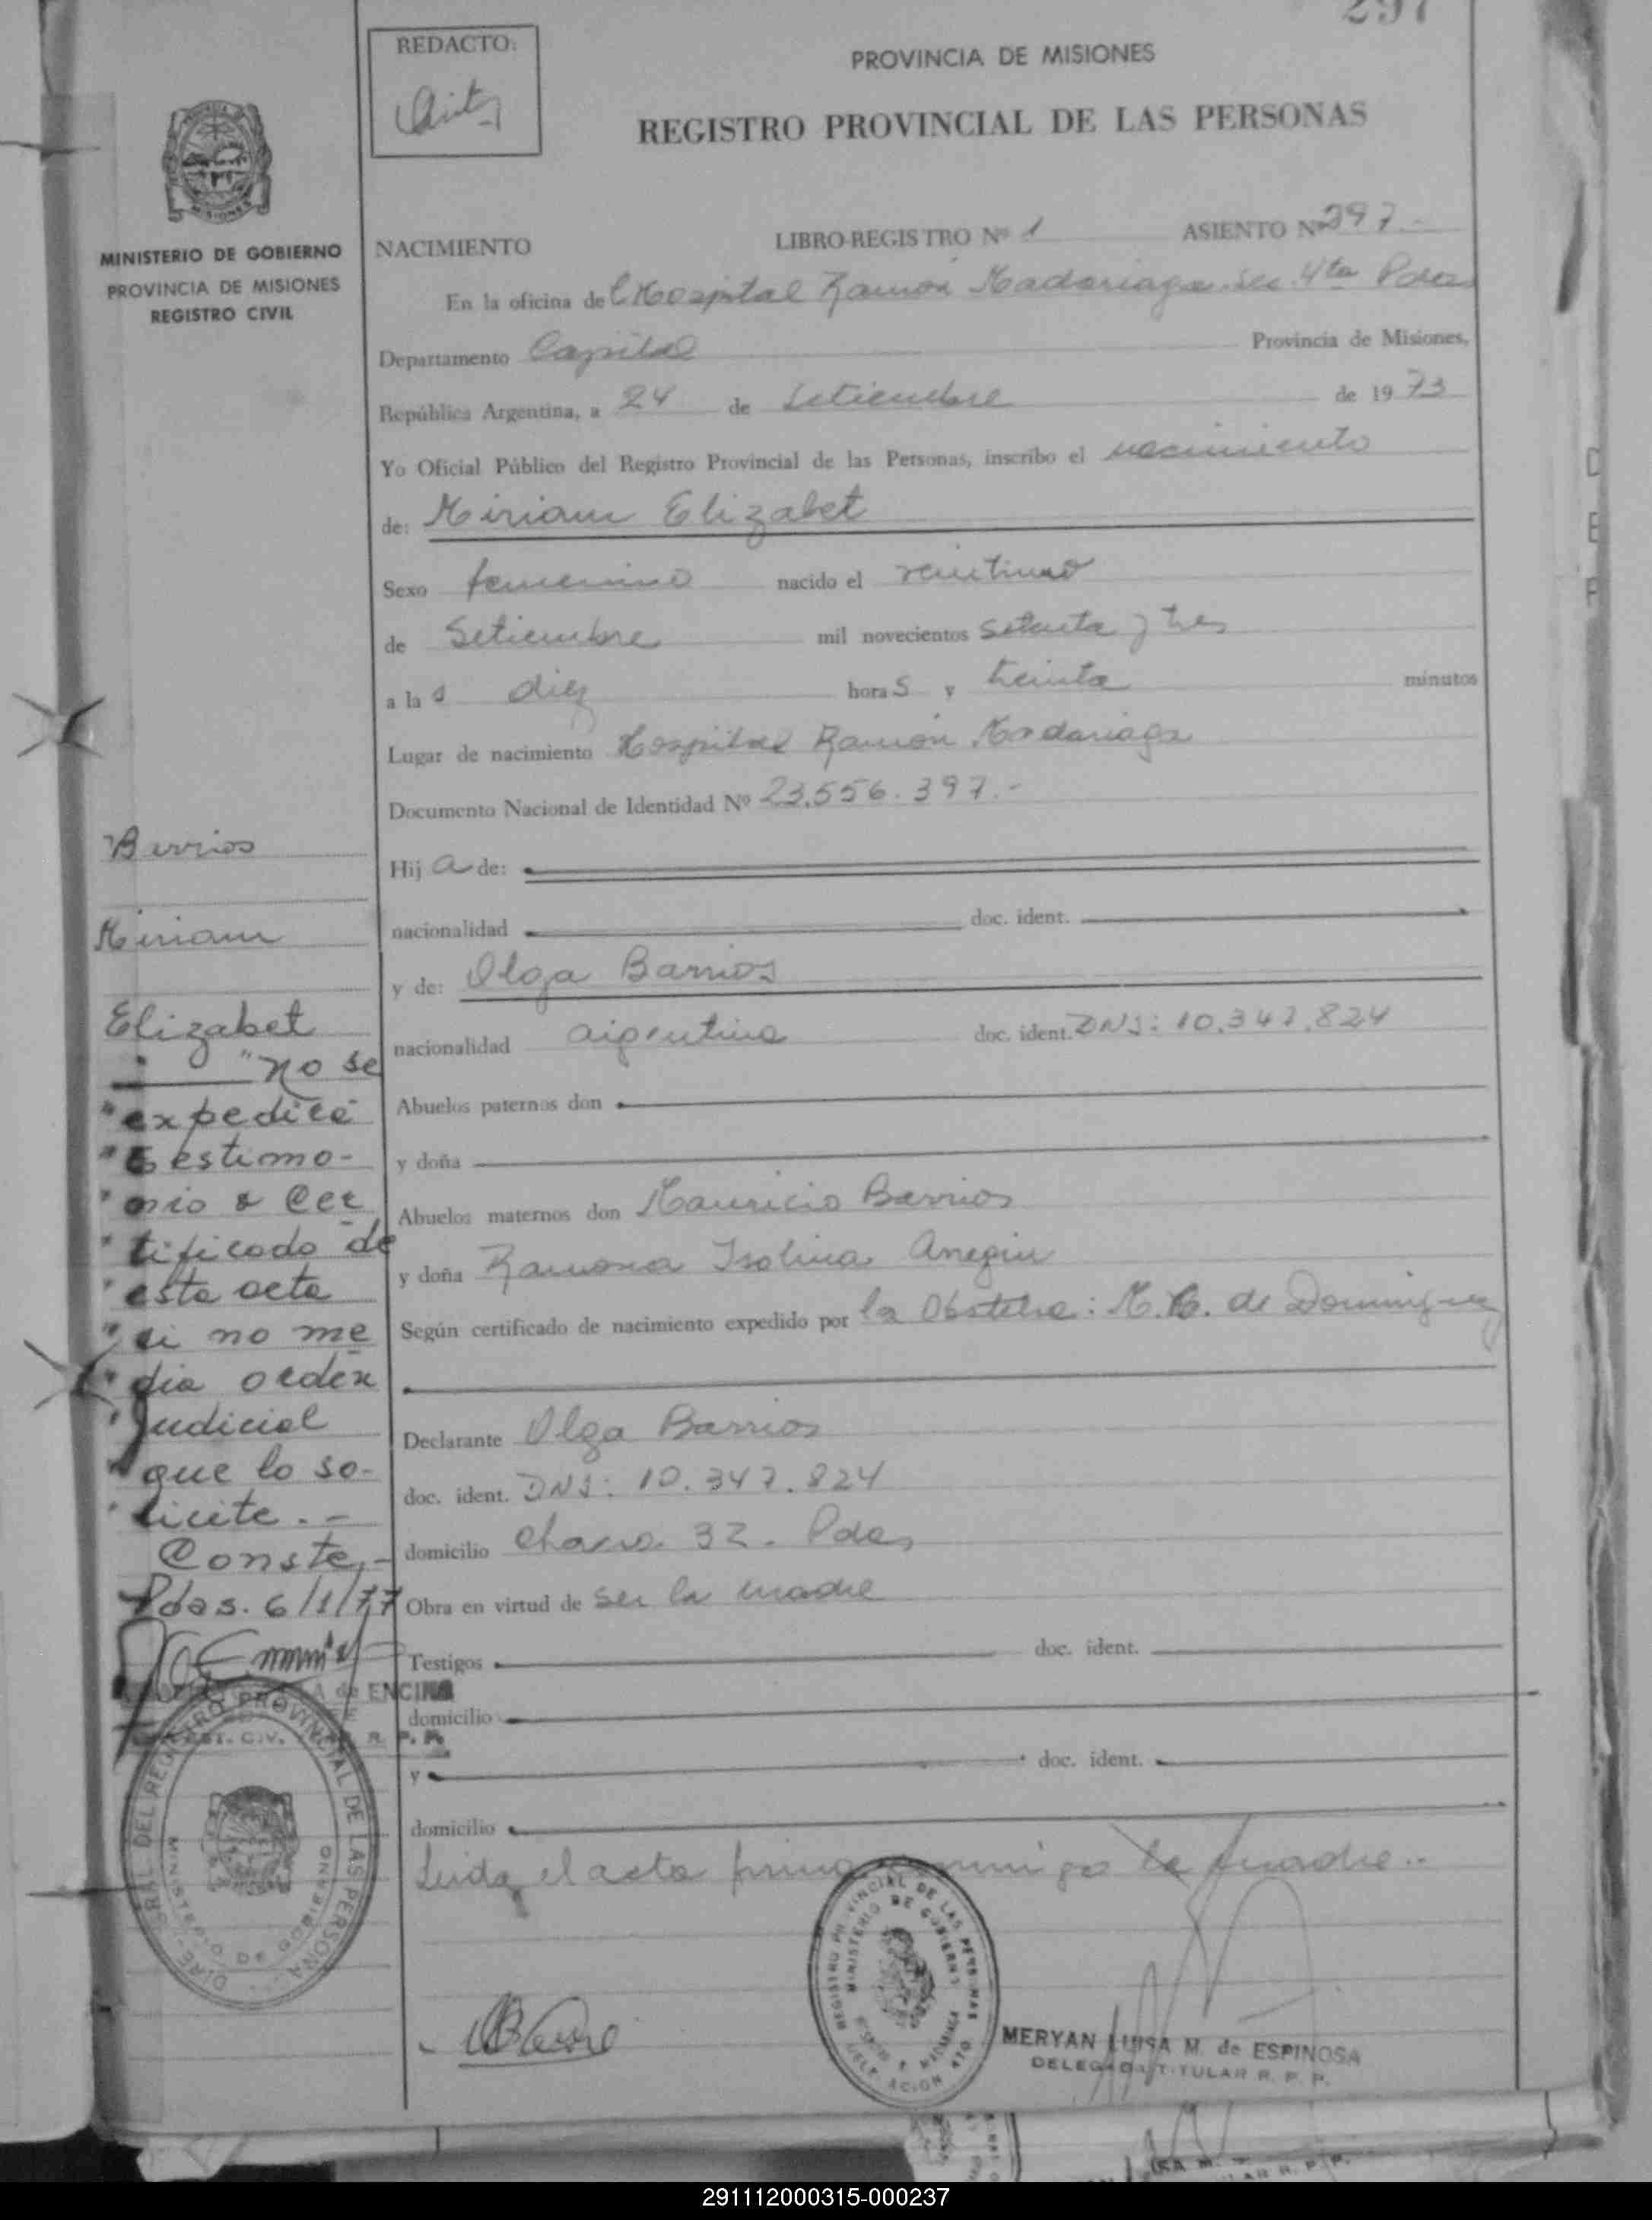 297
REDACTO:
PROVINCIA DE MISIONES
REGISTRO PROVINCIAL DE LAS PERSONAS
MISIONES
MINISTERIO DE GOBIERNO
PROVINCIA DE MISIONES
REGISTRO CIVIL
NACIMIENTO LIBRO-REGISTRO Nº 1 ASIENTO Nº 297.-
En la oficina del Hospital Ramón Madariaga Sec. 4ta Pdas
Departamento Capital Provincia de Misiones,
República Argentina, a 24 de Setiembre de 1973
Yo Oficial Público del Registro Provincial de las Personas, inscribo el nacimiento
de: Miriam Elizabet
Sexo femenino nacido el veintiuno
de Setiembre mil novecientos setenta y tres
a las diez horas y treinta minutos
Lugar de nacimiento Hospital Ramón Madariaga
Documento Nacional de Identidad Nº 23.556.397.-
Hija de:
nacionalidad doc. ident.
y de: Olga Barrios
nacionalidad argentina doc. ident. DNI: 10.347.824
Abuelos paternos don
y doña
Abuelos maternos don Mauricio Barrios
y doña Ramona Isolina
Según certificado de nacimiento expedido por la Obstetra: M. de Dominguez
Declarante Olga Barrios
doc. ident. DNI: 10.347.824
domicilio Chaco 32. Pdas
Obra en virtud de ser la madre
Testigos doc. ident.
domicilio
y doc. ident.
domicilio
Leida el acta firma conmigo la madre..
Barrios
Miriam
Elizabet
"no se
"expedirá
"testimo-
"nio o Cer
"tificado de
"esta acta
"si no me
"dia orden
"judicial
"que lo so-
"licite.-
Conste,-
Pdas. 6/1/77
de ENCINA
R. P. P.
DEL REGISTRO PROVINCIAL DE LAS PERSONAS
MINISTERIO DE GOBIERNO
REGISTRO PROVINCIAL DE LAS PERSONAS
MINISTERIO DE GOBIERNO
MERYAN LUISA M. de ESPINOSA
DELEGADA TITULAR R. P. P.
291112000315-000237